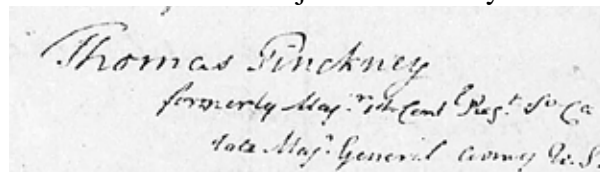 Thomas Pinckney
formerly Majr. 1st Contl. Regt. So Ca
late Majr. General army U.S.